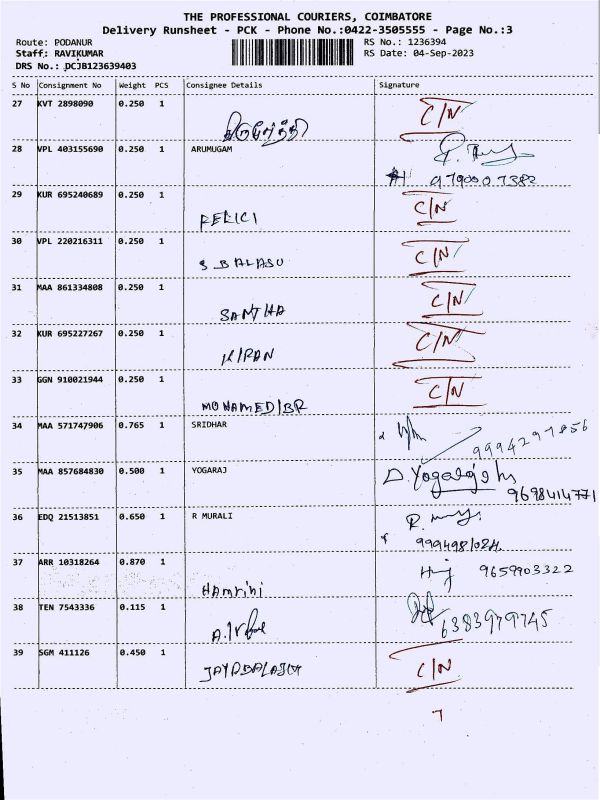 THE PROFESSIONAL COURIERS, COIMBATORE
Delivery Runsheet - PCK - Phone No.:0422-3505555 - Page No.:3
Route: PODANUR RS No.: 1236394
Staff: RAVIKUMAR RS Date: 04-Sep-2023
DRS No.: DCJB123639403
S No Consignment No Weight PCS Consignee Details Signature
27 KVT 2898090 0.250 1 C/N
28 VPL 403155690 0.250 1 ARUMUGAM
9790007382
29 KUR 695240689 0.250 1 C/N
FELICI
30 VPL 220216311 0.250 1 C/N
S BALASU
31 MAA 861334808 0.250 1 C/N
SANTHA
32 KUR 695227267 0.250 1 C/N
KIRAN
33 GGN 910021944 0.250 1 C/N
MOHAMED IBR
34 MAA 571747906 0.765 1 SRIDHAR
9994297856
35 MAA 857684830 0.500 1 YOGARAJ D. Yogarajesh
9698414771
36 EDQ 21513851 0.650 1 R MURALI
37 ARR 10318264 0.870 1 9659903322
Hamrini
38 TEN 7543336 0.115 1 6383979745
39 SGM 411126 0.450 1 C/N
7